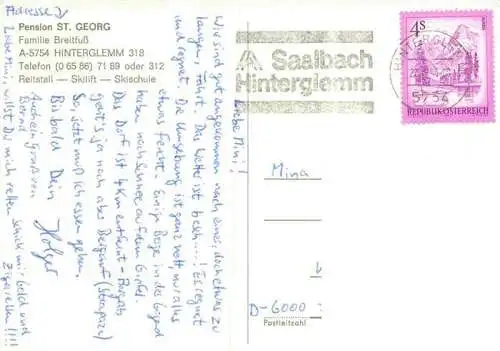 Adresse
Pension ST. GEORG
Familie Breitfuß
A-5754 HINTERGLEMM 318
Telefon (0 65 86) 71 89 oder 312
Reitstall — Skilift — Skischule
Saalbach
Hinterglemm
HINTERGLEMM
5754
4S
REPUBLIK ÖSTERREICH
Liebe Mini!
Wir sind gut angekommen nach einer, doch etwas zu
langen, Fahrt. Das Wetter ist besch...! Es regnet
und regnet. Die Umgebung ist ganz nett nur alles
etwas feucht. Einige Berge in der Gegend
haben noch Schnee auf dem Gipfel.
Das Dorf ist 4 km entfernt - Bergab
geht's ja noch aber Bergauf
So, jetzt muß ich essen gehen.
Bis bald Dein
Holger
Auch ein Gruß von
Bernd
Liebe Mini, willst Du mich retten schick mir bald und
Zigaretten!!!!
Mina
D-6000
Postleitzahl